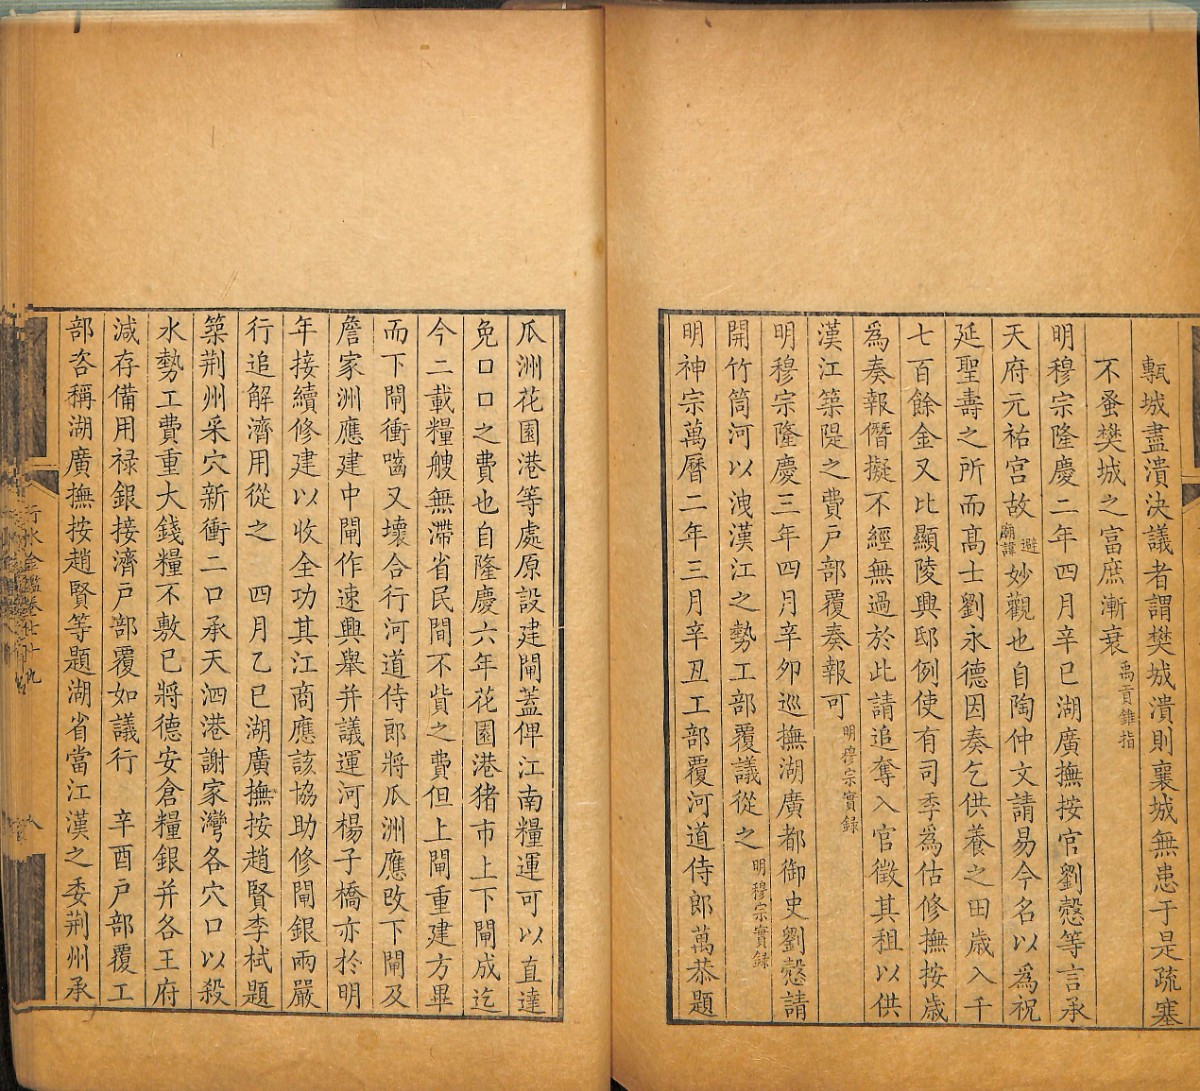 甎城盡潰決議者謂樊城潰則襄城無患于是疏塞
不蚤樊城之富庶漸衰禹貢錐指
明穆宗隆慶二年四月辛巳湖廣撫按官劉慤等言承
天府元祐宮故避廟諱妙觀也自陶仲文請易今名以為祝
延聖壽之所而髙士劉永德因奏乞供養之田歲入千
七百餘金又比顯陵興邸例使有司季為估修撫按歲
為奏報僭擬不經無過於此請追奪入官徵其租以供
漢江築隄之費戸部覆奏報可明穆宗實録
明穆宗隆慶三年四月辛夘巡撫湖廣都御史劉慤請
開竹筒河以洩漢江之勢工部覆議從之明穆宗實録
明神宗萬曆二年三月辛丑工部覆河道侍郎萬恭題
瓜洲花園港等處原設建閘蓋俾江南糧運可以直達
免口口之費也自隆慶六年花園港猪市上下閘成迄
今二載糧艘無滯省民間不貲之費但上閘重建方畢
而下閘衝嚙又壞合行河道侍郎將瓜洲應改下閘及
詹家洲應建中閘作速興舉并議運河楊子橋亦於明
年接續修建以收全功其江商應該協助修閘銀兩嚴
行追解濟用從之　四月乙巳湖廣撫按趙賢李栻題
築荆州采穴新衝二口承天泗港謝家灣各穴口以殺
水勢工費重大錢糧不敷已將德安倉糧銀并各王府
減存備用禄銀接濟戸部覆如議行　辛酉戸部覆工
部咨稱湖廣撫按趙賢等題湖省當江漢之委荆州承
行水金鑑卷七十九